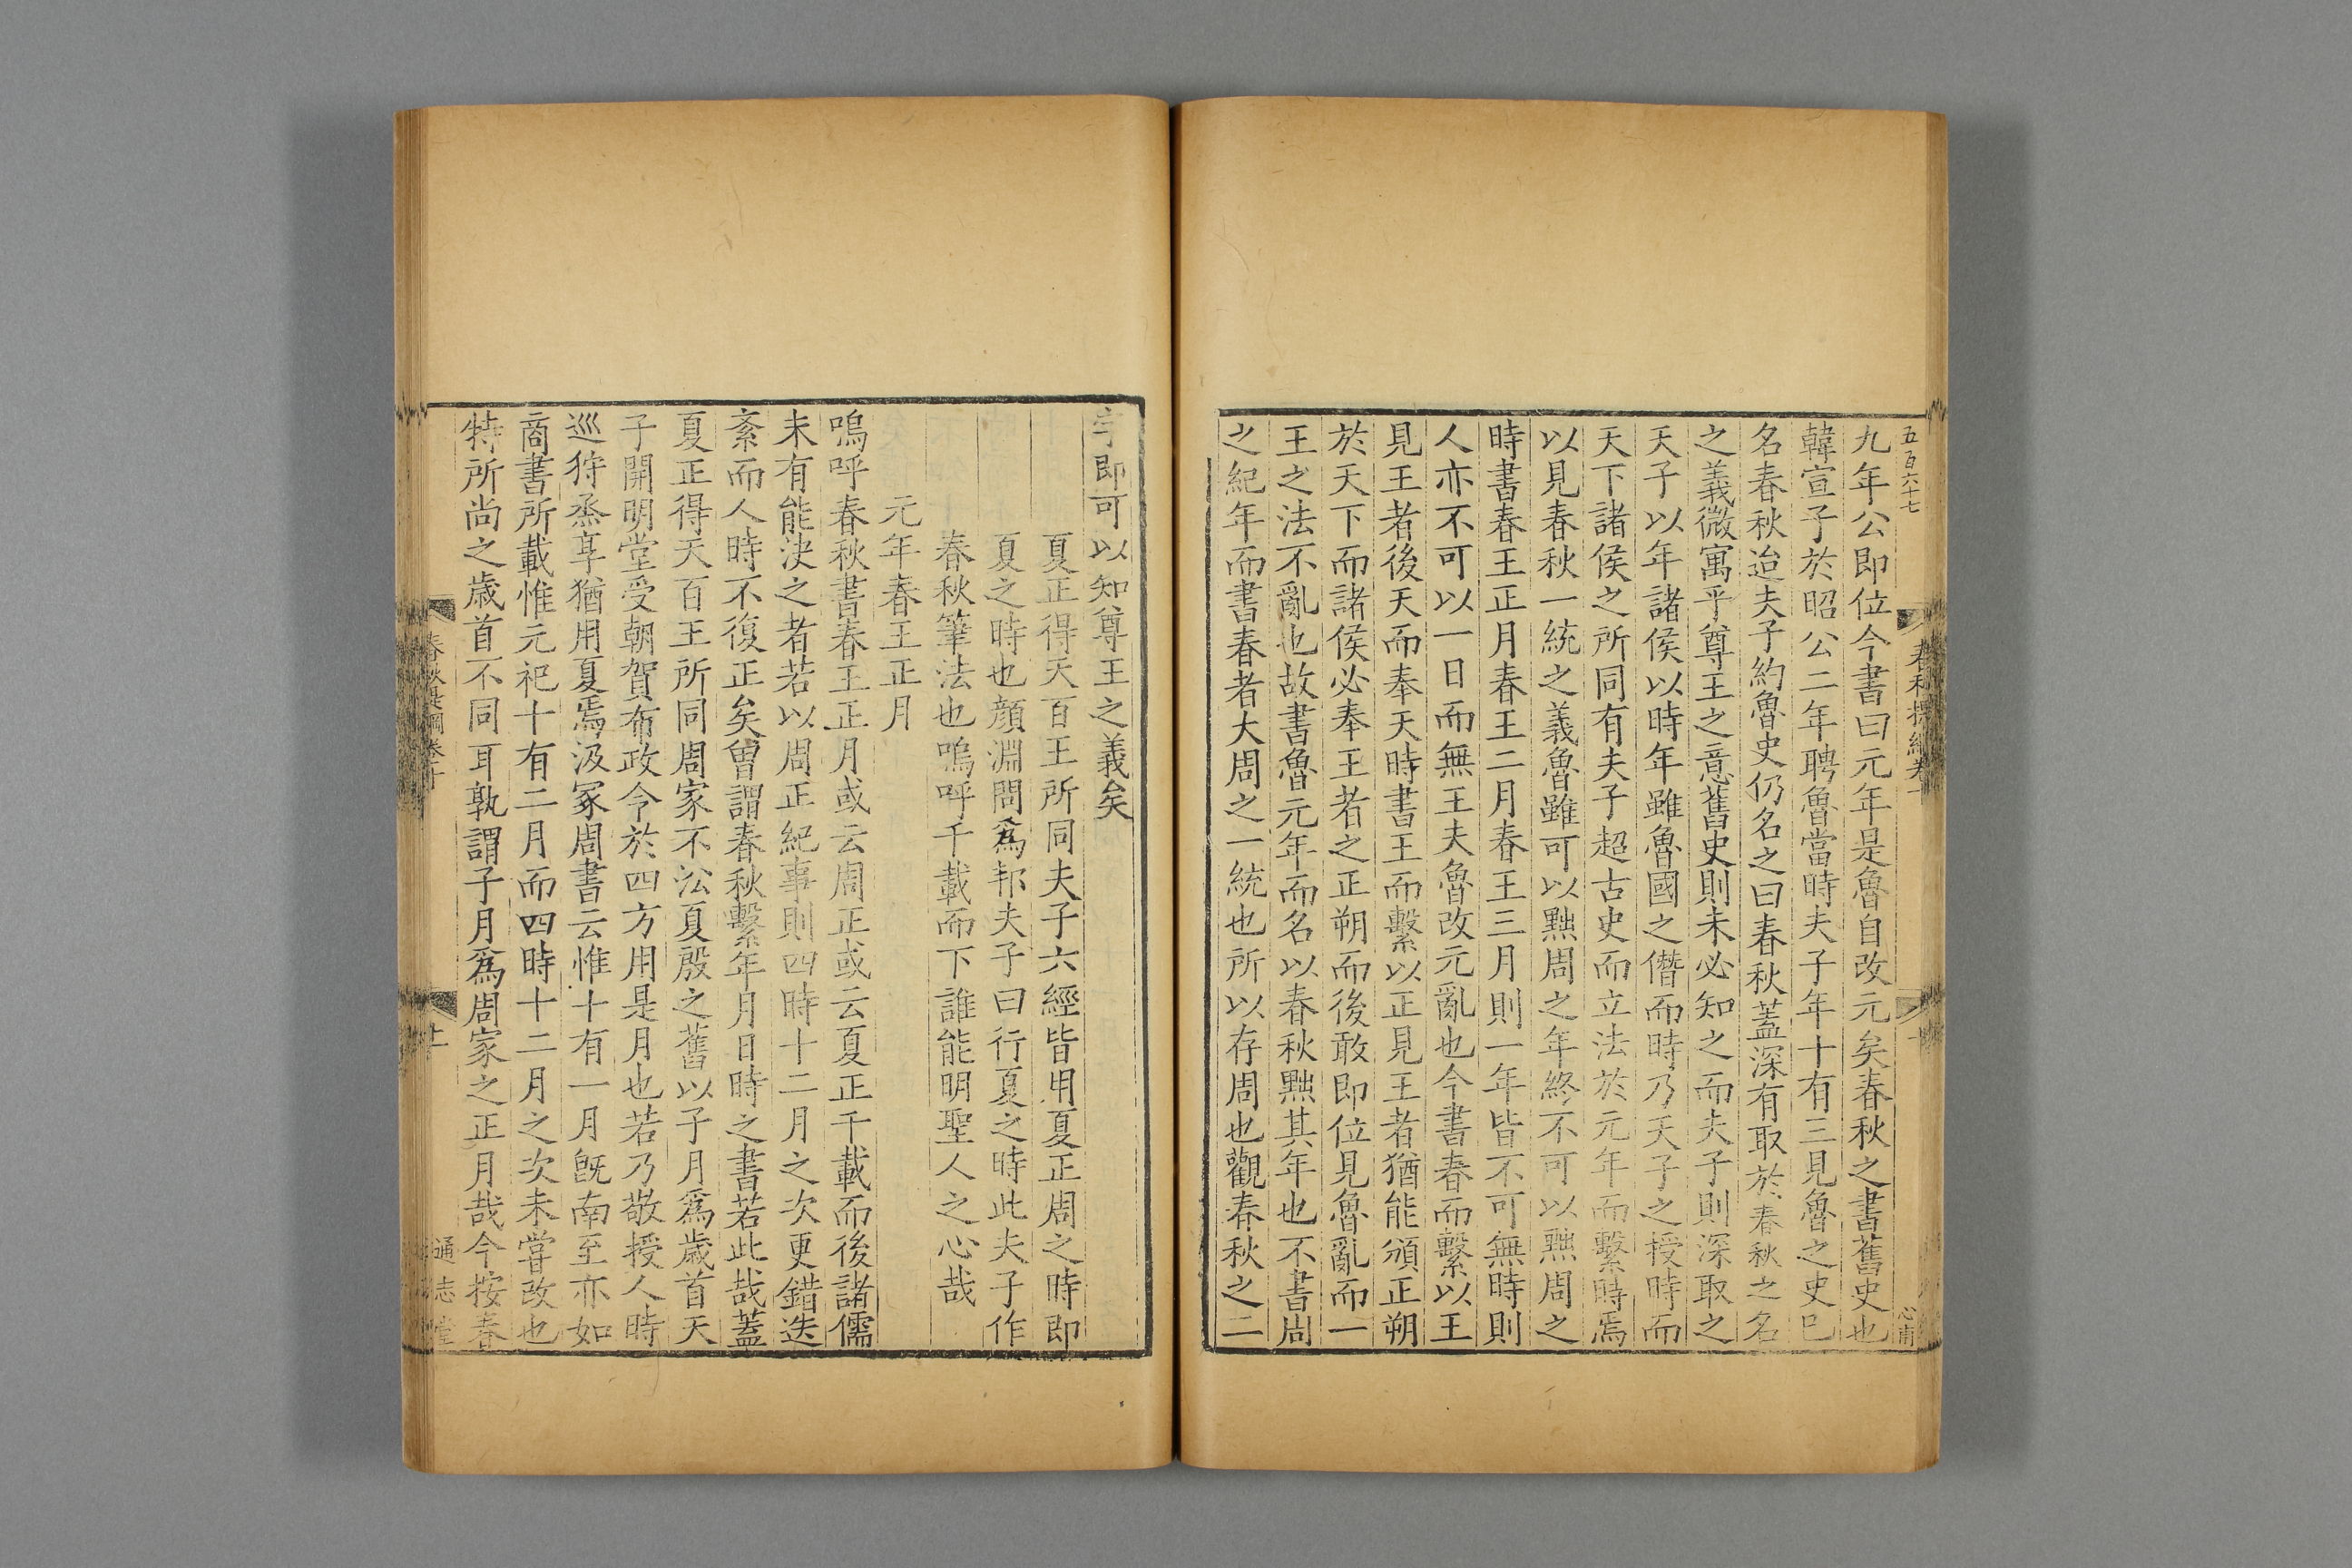 五百六十七
九年公即位今書曰元年是魯自改元矣春秋之書舊史也
韓宣子於昭公二年聘魯當時夫子年十有三見魯之史已
名春秋迨夫子約魯史仍名之曰春秋蓋深有取於春秋之名
之義微寓乎尊王之意舊史則未必知之而夫子則深取之
天子以年諸侯以時年雖魯國之僭而時乃天子之授時而
天下諸侯之所同有夫子超古史而立法於元年而繫時焉
以見春秋一統之義魯雖可以黜周之年終不可以黜周之
時書春王正月春王二月春王三月則一年皆不可無時則
人亦不可以一日而無王夫魯改元亂也今書春而繫以王
見王者後天而奉天時書王而繫以正見王者猶能頒正朔
於天下而諸侯必奉王者之正朔而後敢即位見魯亂而一
王之法不亂也故書魯元年而名以春秋黜其年也不書周
之紀年而書春者大周之一統也所以存周也觀春秋之二
字即可以知尊王之義矣
夏正得天百王所同夫子六經皆用夏正周之時即
夏之時也顏淵問爲邦夫子曰行夏之時此夫子作
春秋筆法也嗚呼千載而下誰能明聖人之心哉
元年春王正月
嗚呼春秋書春王正月或云周正或云夏正千載而後諸儒
未有能決之者若以周正紀事則四時十二月之次更錯迭
紊而人時不復正矣曾謂春秋繫年月日時之書若此哉蓋
夏正得天百王所同周家不㳂夏殷之舊以子月爲歲首天
子開明堂受朝賀布政令於四方用是月也若乃敬授人時
巡狩烝享猶用夏焉汲冢周書云惟十有一月旣南至亦如
商書所載惟元祀十有二月而四時十二月之次未嘗改也
特所尚之歲首不同耳孰謂子月爲周家之正月哉今按春
春秋提綱卷十
十一
通志堂